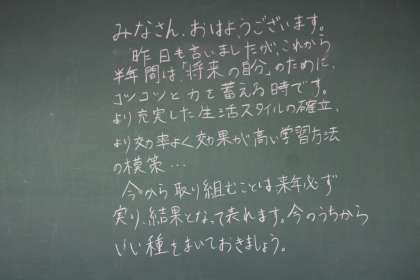 みなさん、おはようございます。
昨日も言いましたが、これから
半年間は「将来の自分」のために、
コツコツと力を蓄える時です。
より充実した生活スタイルの確立、
より効率よく効果が高い学習方法
の模索…
今から取り組むことは来年必ず
実り、結果となって表れます。今のうちから
いい種をまいておきましょう。